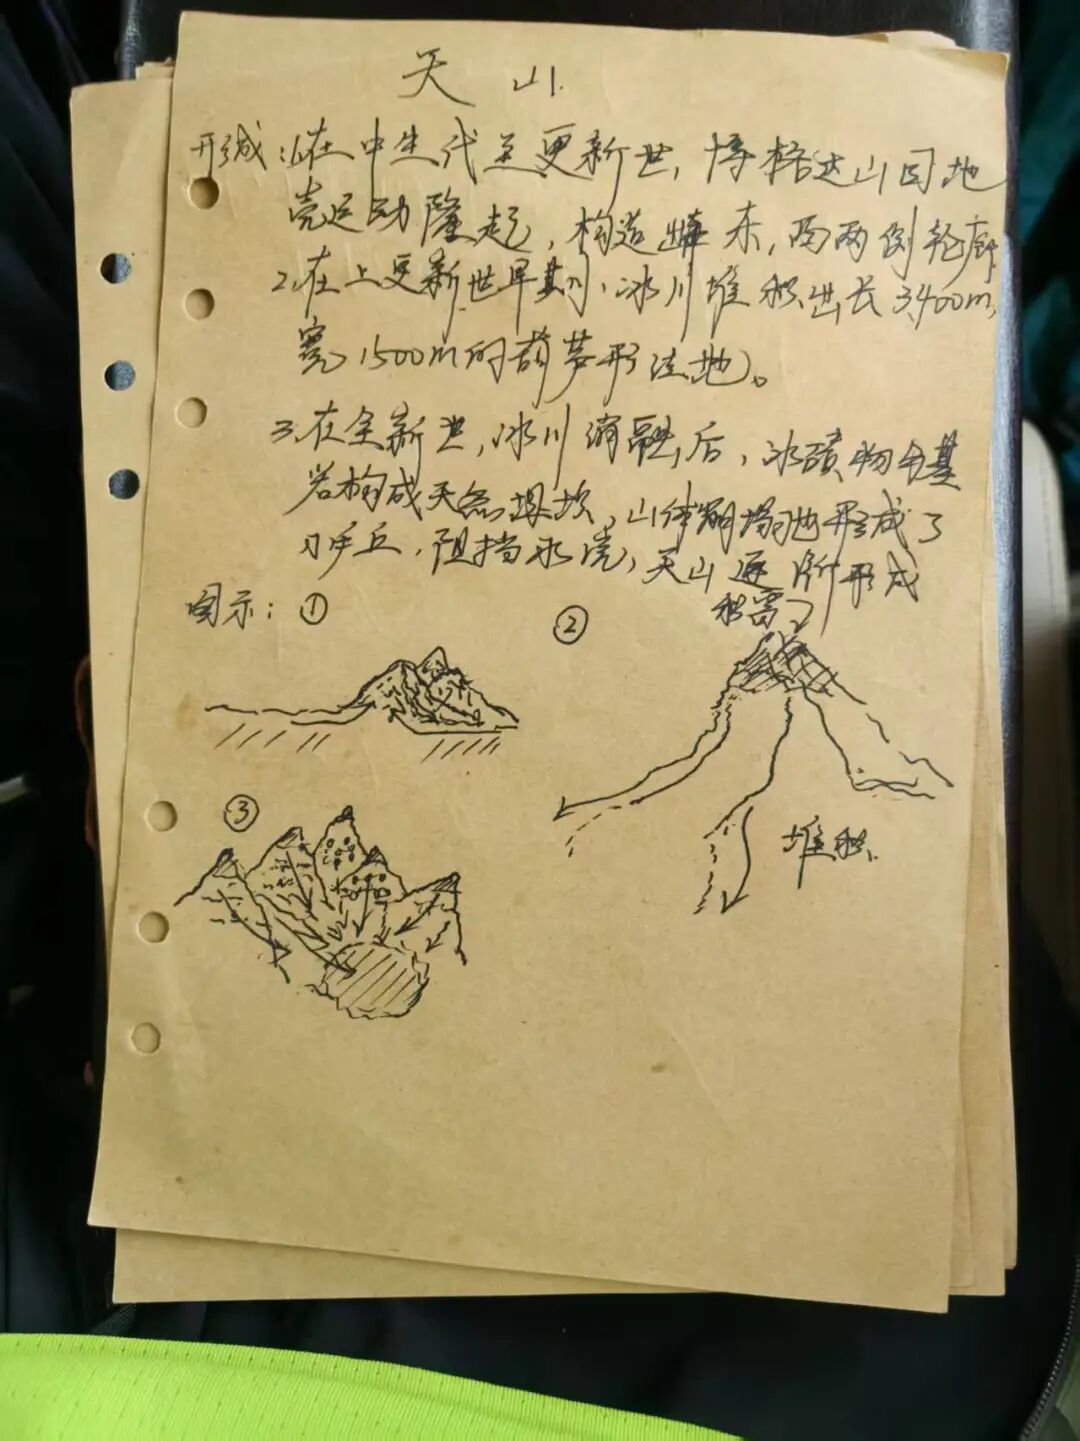 天山
形成:1.在中生代至更新世,博格达山因地
壳运动隆起,构造出东,西两侧轮廓
2.在上更新世早期,冰川堆积出长3400m,
宽1500m的葫芦形洼地。
3.在全新世,冰川消融后,冰碛物与基
岩构成天然堤坝,山体崩塌也形成了
,阻挡水流,天山逐渐形成
图示:①
②
积雪
③
堆积